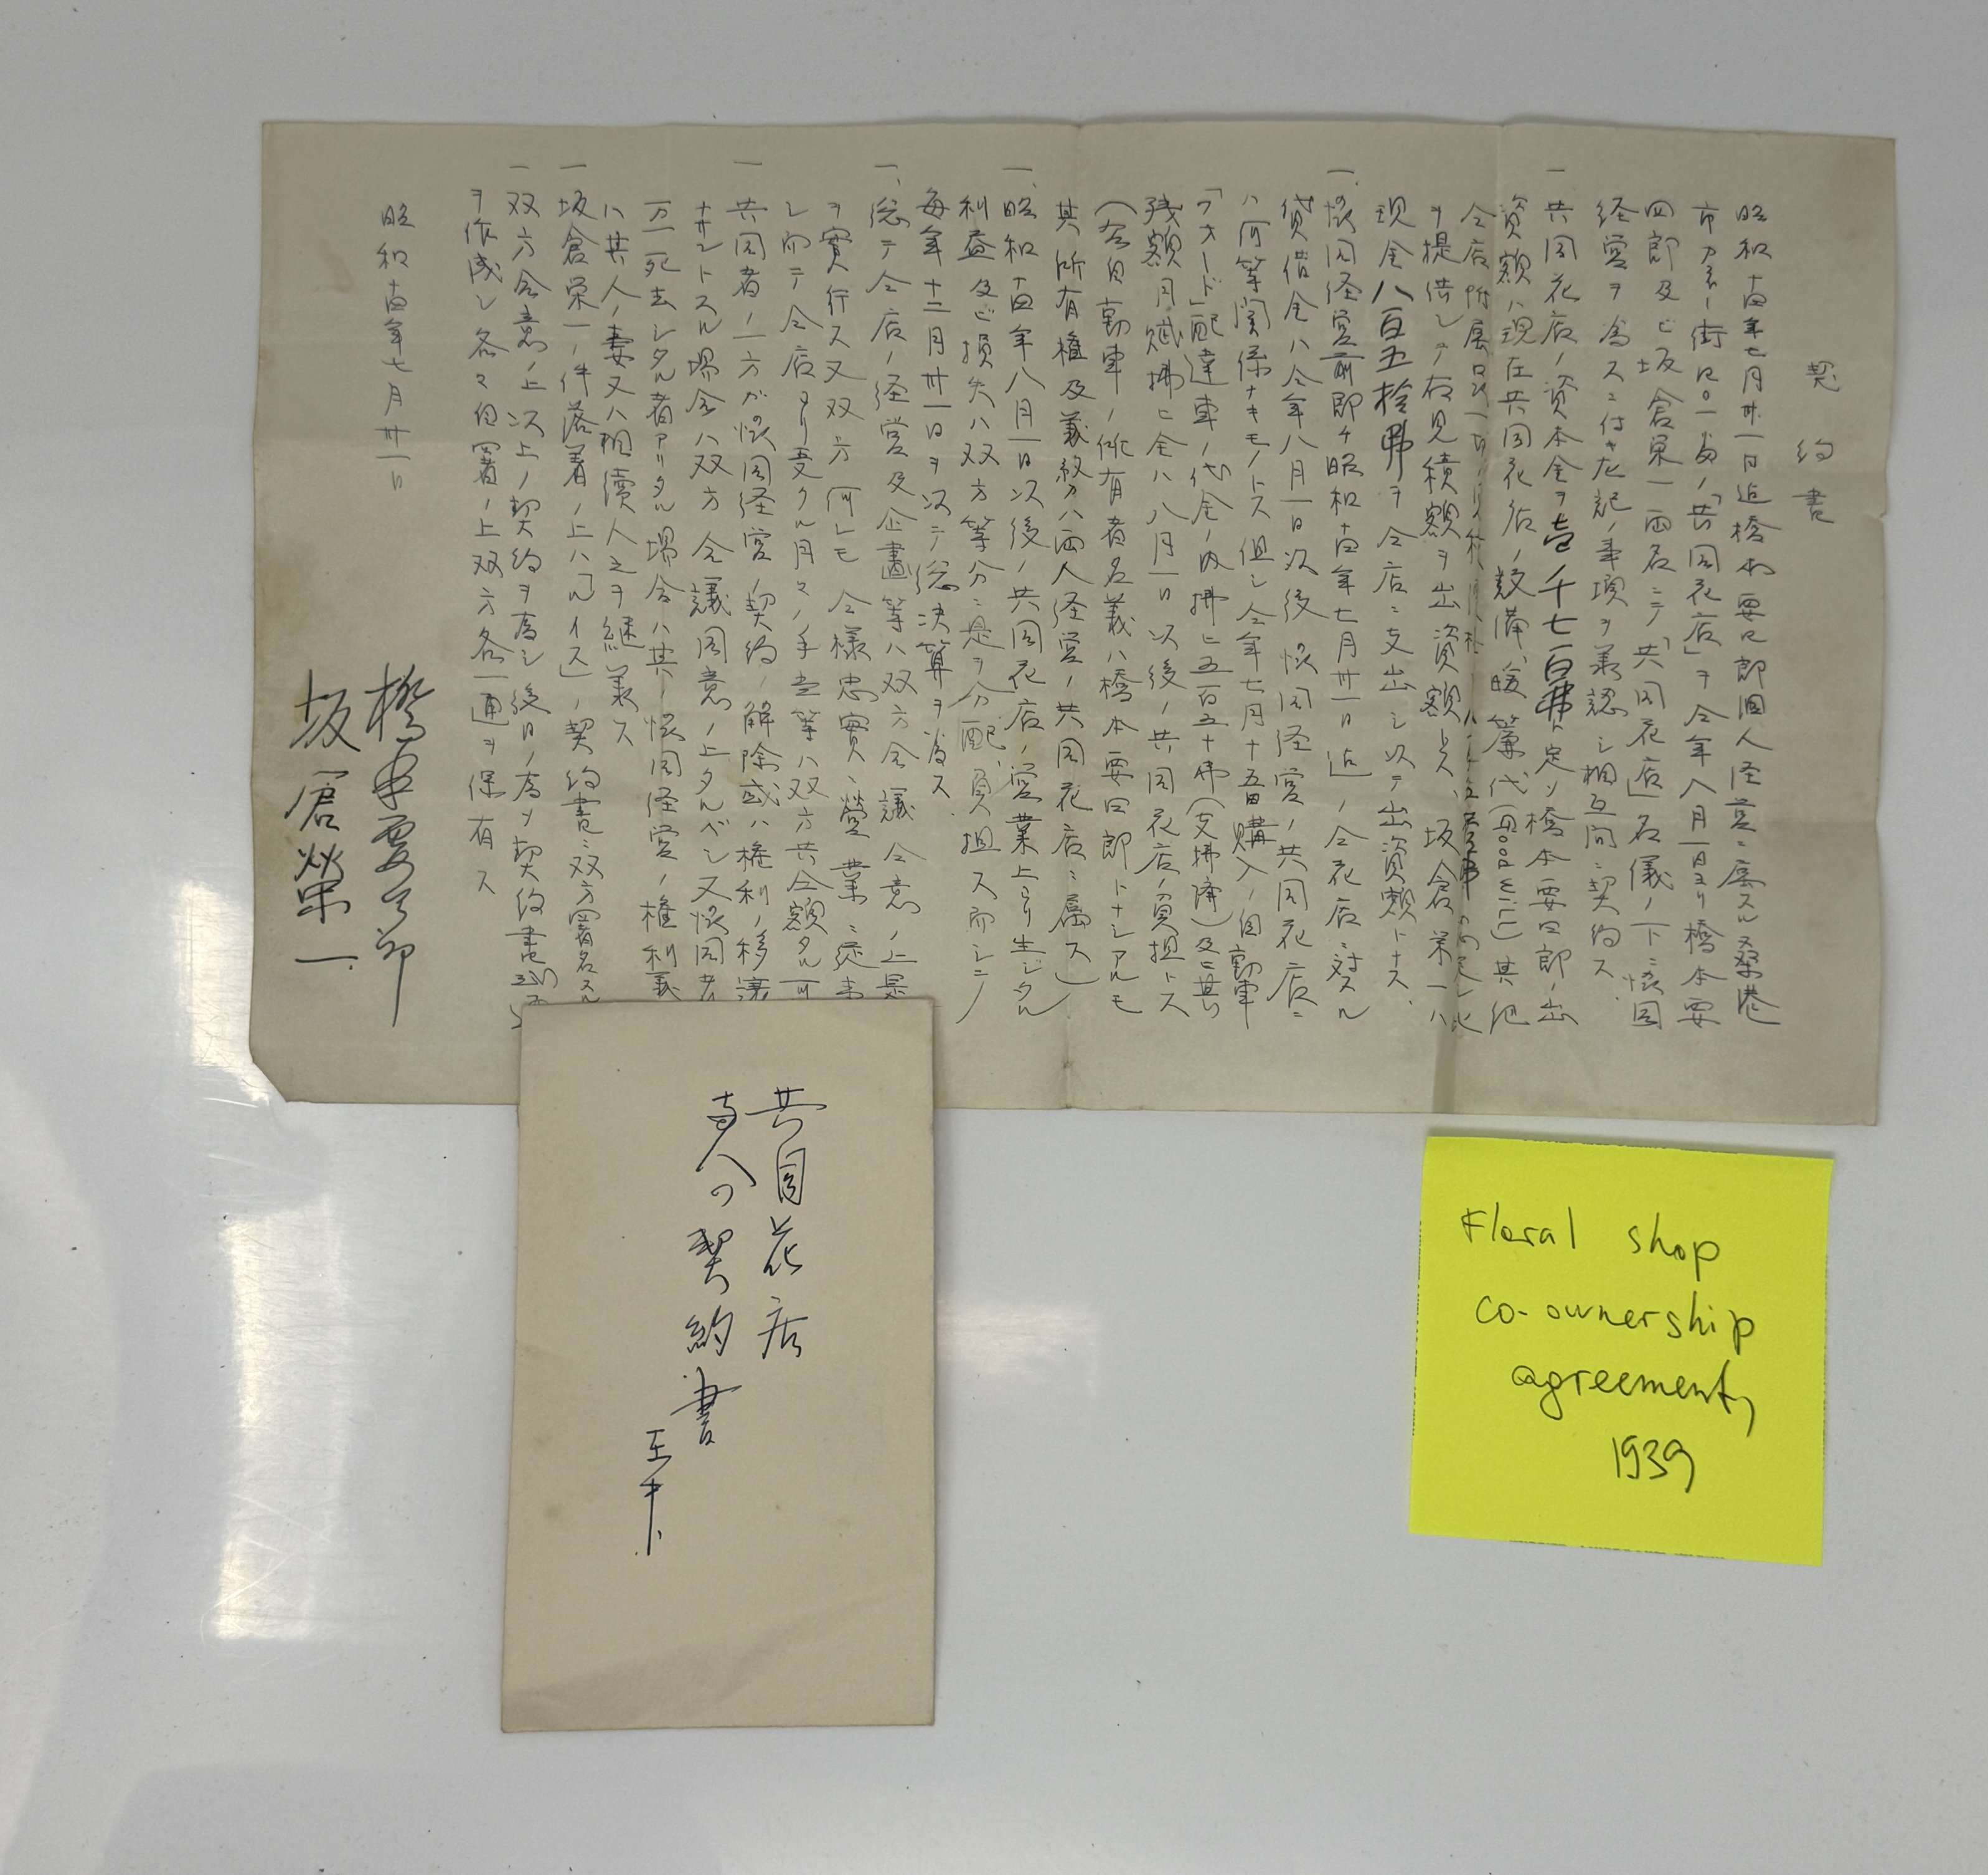 契約書
昭和十四年七月卅一日迄橋本要四郎個人経営ニ属スル桑港
市 街 番ノ「共同花店」ヲ仝年八月一日ヨリ橋本要
四郎及ビ坂倉栄一両名ニテ「共同花店」名儀ノ下ニ協同
経営ヲ為スニ付キ左記ノ事項ヲ承認シ相互間ニ契約ス
一 共同花店ノ資本金ヲ壱千七百弗ト定メ橋本要四郎ノ出
資額ハ現在共同花店ノ設備、暖簾代(Good Will)其他
仝店附属品一切
ヲ提供シテ右見積額ヲ出資額トス、坂倉栄一ハ
現金八百五拾弗ヲ仝店ニ支出シ以テ出資額トナス、
一、協同経営前即チ昭和十四年七月卅一日迄ノ仝花店ニ対スル
貸借金ハ仝年八月一日以後協同経営ノ共同花店ニ
ハ何等関係ナキモノトス但シ仝年七月十五日購入ノ自動車
「フオード」配達車ノ代金ノ内払ヒ五百五十弗(支払済)及ビ其
残額月賦払ヒ金ハ八月一日以後ノ共同花店ノ負担トス
(仝自動車ノ所有者名義ハ橋本要四郎トナシアルモ
其所有権及義務ハ両人経営ノ共同花店ニ属ス)
一、昭和十四年八月一日以後ノ共同花店ノ営業上ヨリ生ジタル
利益及ビ損失ハ双方等分ニ是ヲ分配、負担ス而シテ
毎年十二月卅一日ヲ以テ総決算ヲ為ス、
一、総テ仝店ノ経営及企画等ハ双方合議合意ノ上是
ヲ実行ス又双方何レモ仝様忠実ニ営業ニ従事
シ而テ仝店ヨリ受クル月々ノ手当等ハ双方共仝額タル可
一 共同者ノ一方ガ協同経営ノ契約ノ解除或ハ権利ノ移譲
ナサントスル場合ハ双方合議同意ノ上タルベシ又協同者
万一死去シタル者アリタル場合ハ其ノ協同経営ノ権利義
ハ其人ノ妻又ハ相続人之ヲ継承ス
一 坂倉栄一ノ件落着ノ上ハ ノ契約書ニ双方署名スル
一 双方合意ノ上以上ノ契約ヲ為シ後日ノ為メ契約書
ヲ作成シ各々自署ノ上双方各一通ヲ保有ス
昭和十四年七月卅一日
橋本要四郎
坂倉栄一
共同花店
両人の契約書
Floral shop
co-ownership
agreement,
1939